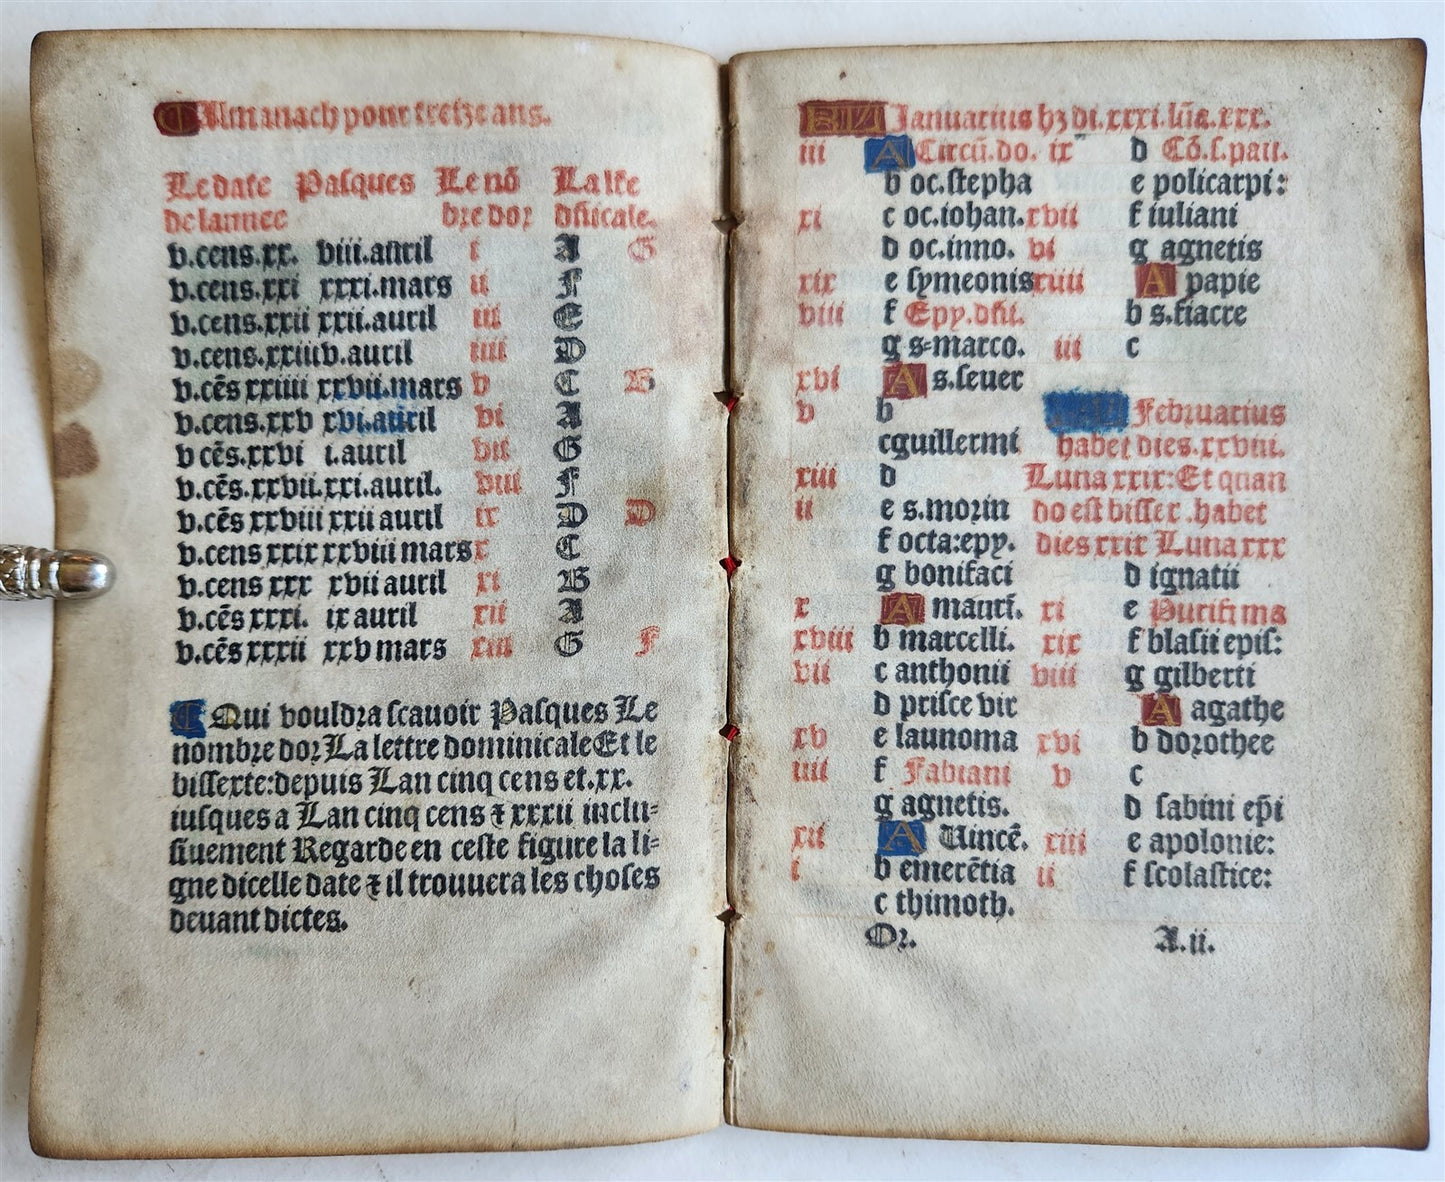 Almanach pour treize ans.
Le date Pasques Le nõ La lr̃e
de lannee bre dor dñicale.
v.cens.xx. viii.auril i A G
v.cens.xxi xxxi.mars ii F
v.cens.xxii xx.auril iii E
v.cens.xxiii v.auril iiii D
v.cẽs xxiiii xxvii.mars v C B
v.cens.xxv xvi.auril vi A
v cẽs.xxvi i.auril vii G
v.cẽs.xxvii.xxi.auril. viii F
v.cẽs xxviii xii auril ix D D
v.cens xxix xxviii mars x C
v.cens xxx xvii auril xi B
v.cẽs xxxi. ix auril xii A
v.cẽs xxxii xxv mars xiii G F
Qui vouldra scauoir Pasques Le
nombre dor La lettre dominicale Et le
bissexte:depuis Lan cinq cens et.xx.
iusques a Lan cinq cens & xxxii inclu=
siuement Regarde en ceste figure la li=
gne dicelle date & il trouuera les choses
deuant dictes.
Januarius hz di.xxxi.lũa.xxx.
iii A Circũ.do.
b oc.stepha
xi c oc.iohan.
d oc.inno.
xix e symeonis
viii f Epy.dñi.
g s=marco.
xvi A s.seuer
v b
c guillermi
xiii d
ii e s.morin
f octa:epy.
g bonifaci
x A mauri.
xviii b marcelli.
vii c anthonii
d prisce vir
xv e launoma
iiii f Fabiani
g agnetis.
xii A Uincẽ.
i b emerẽtia
c thimoth.
ix d Cõ.s.pau.
e policarpi:
xvii f iuliani
vi g agnetis
xiiii A papie
b s.fiacre
iii c
Februarius
habet dies.xxviii.
Luna xxix:Et quan
do est bissex.habet
dies xxix Luna xxx
d ignatii
xi e Purifi ma
xix f blasii epis:
viii g gilberti
A agathe
xvi b dorothee
v c
d sabini ep̃i
xiii e apolonie:
ii f scolastice:
Or. A.ii.